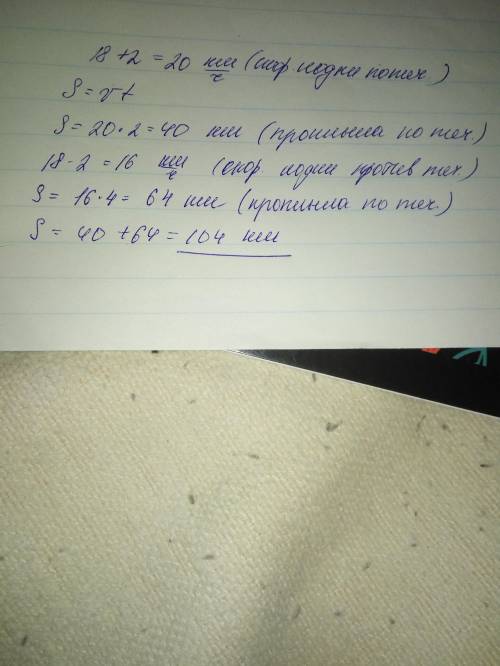 18 + 2 = 20 км/ч (скор лодки по теч.)
S = vt
S = 20 · 2 = 40 км (проплыла по теч.)
18 - 2 = 16 км/ч (скор. лодки против теч.)
S = 16 · 4 = 64 км (проплыла по теч.)
S = 40 + 64 = 104 км